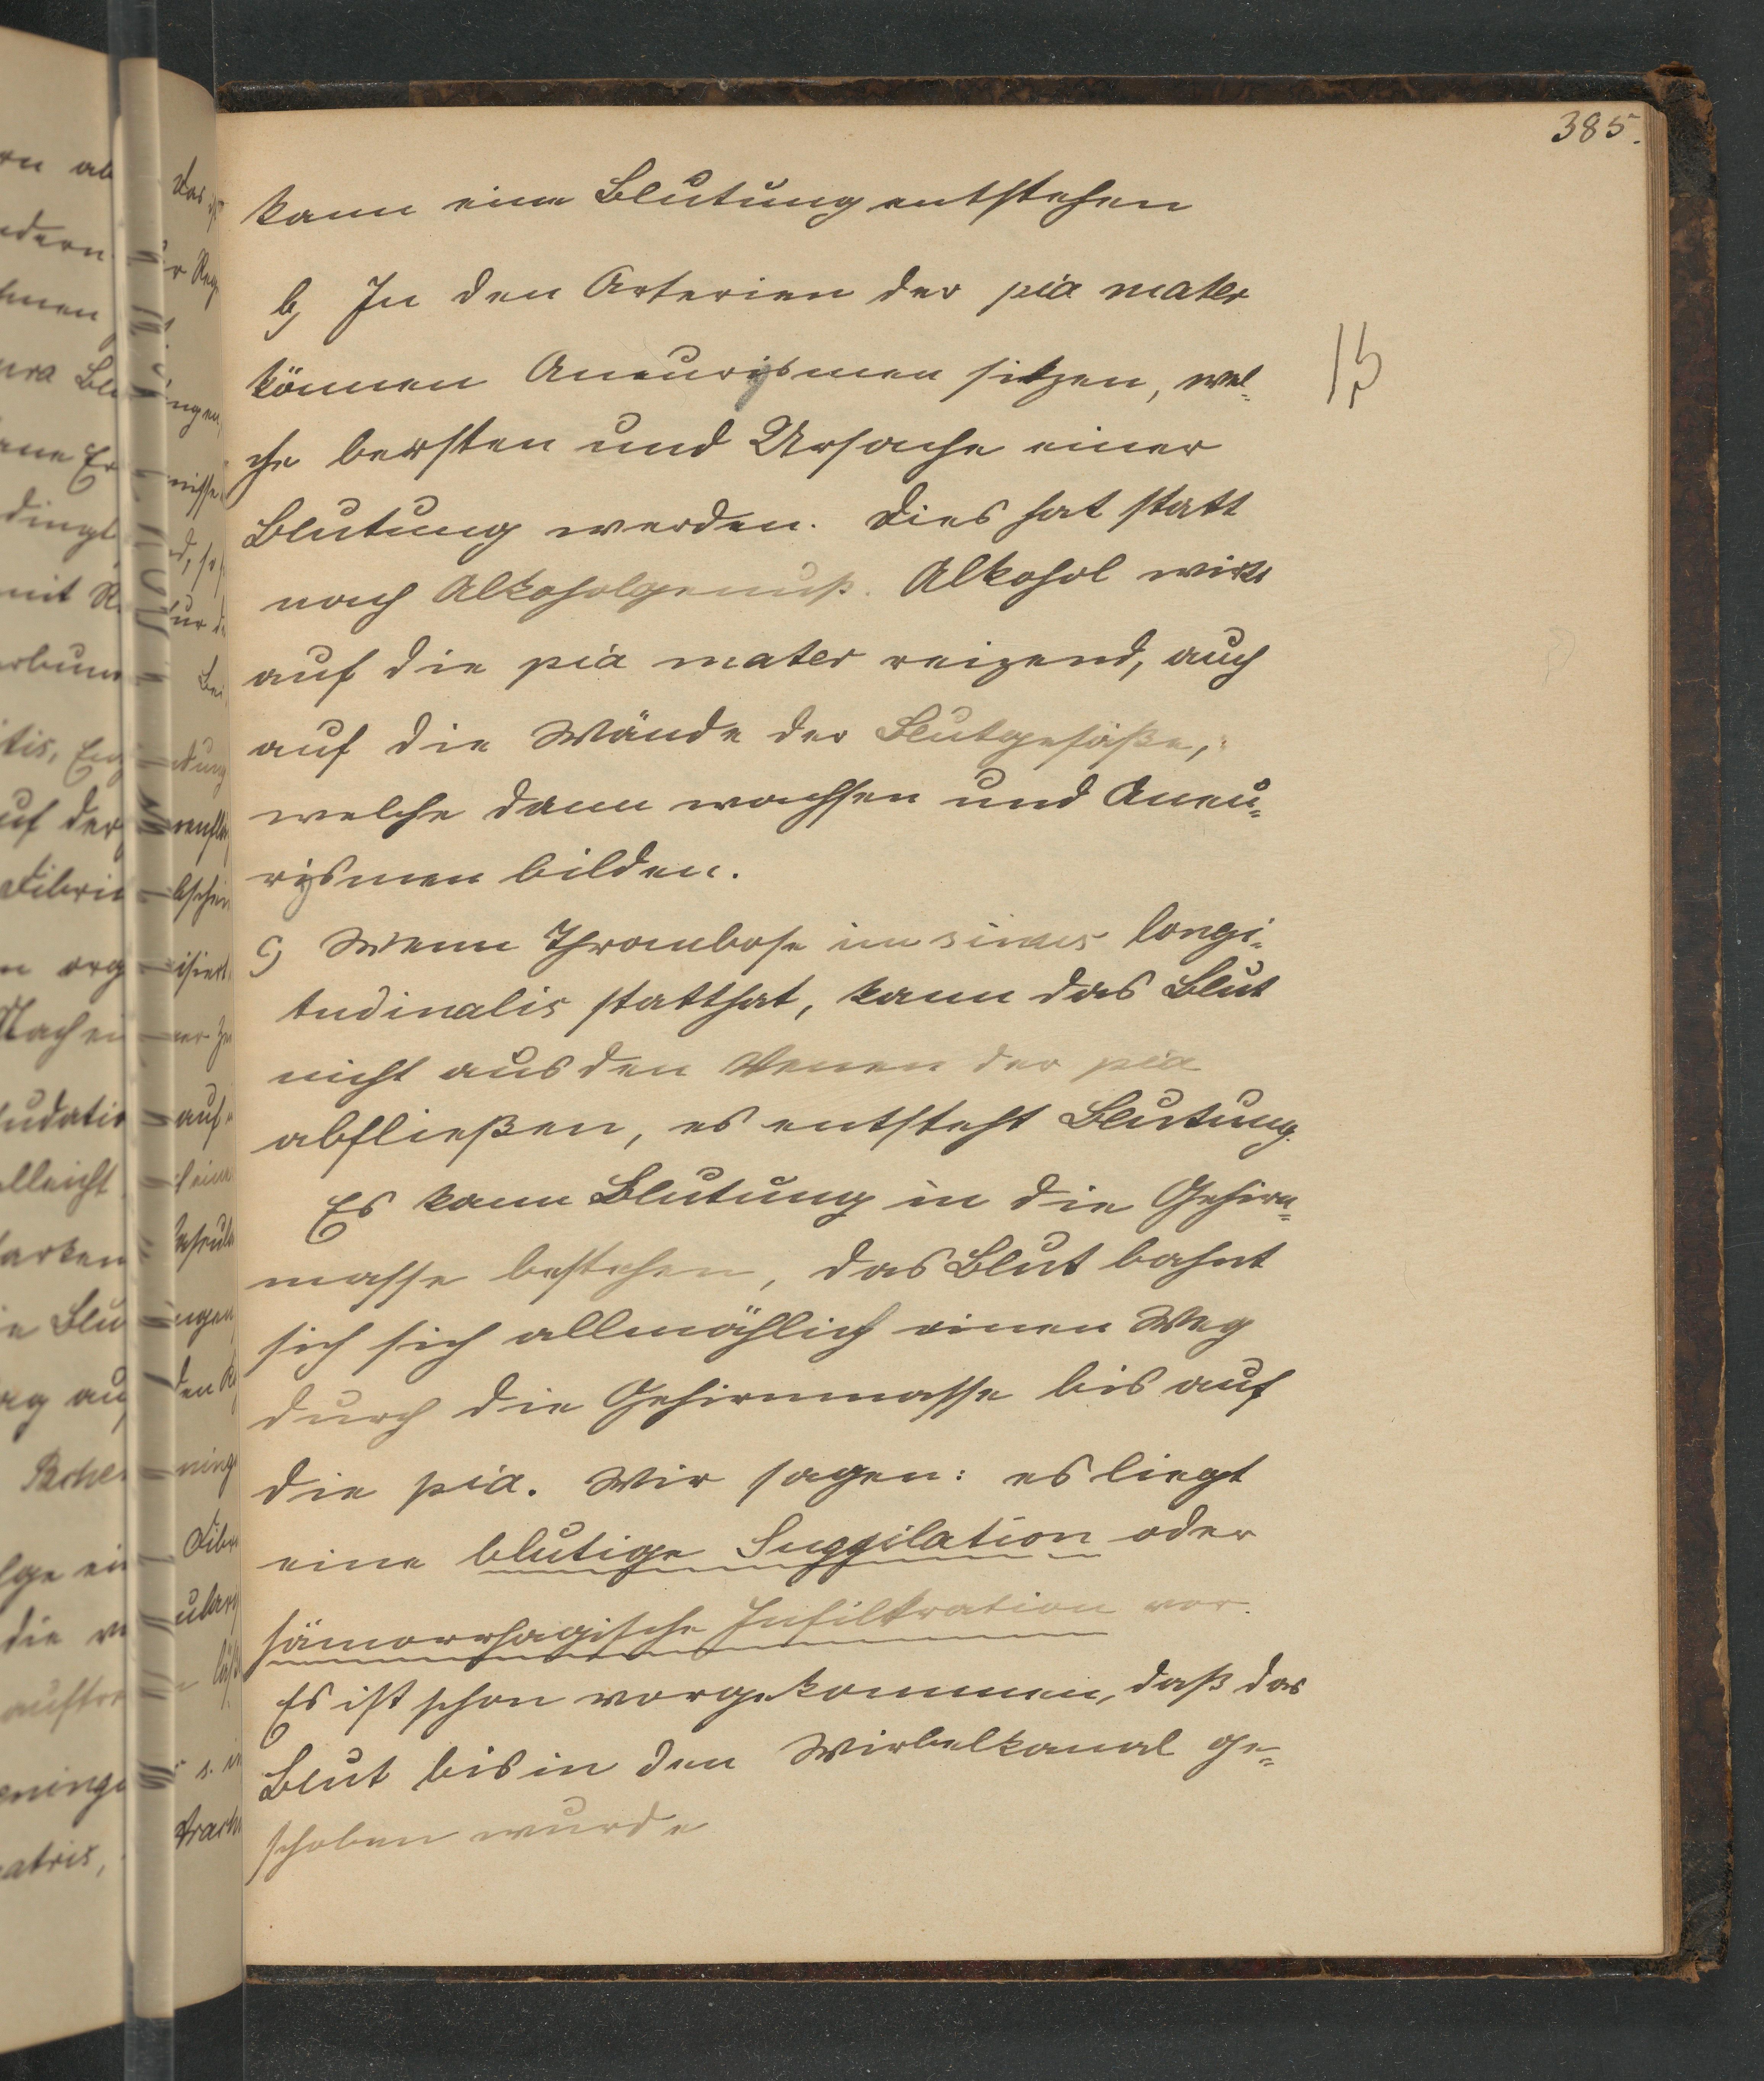 385.
kann eine Blutung entstehen
b) In den Arterien der pia mater
können Aneurysmen sitzen, wel=
che bersten und Ursache einer
Blutung werden. Dies hat statt
nach Alkoholgenuß. Alkohol wirkt
auf die pia mater reizend, auch
auf die Wände der Blutgefäße,
welche dann wachsen und Aneu=
rysmen bilden.
c) Wenn Thrombose im sinus longi=
tudinalis statthat, kann das Blut
nicht aus den Venen der pia
abfließen, es entsteht Blutung.
Es kann Blutung in die Gehirn=
masse bestehen, das Blut bahnt
sich sich allmählich einen Weg
durch die Gehirnmasse bis auf
die pia. Wir sagen: es liegt
eine blutige Suggilation oder
hämorrhagische Infiltration vor.
Es ist schon vorgekommen, daß das
Blut bis in den Wirbelkanal ge=
schoben wurde